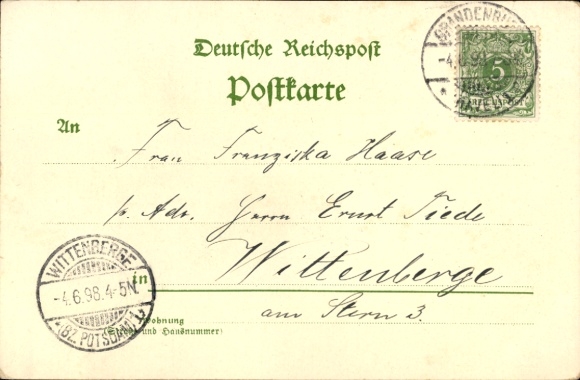 Deutsche Reichspost
Postkarte
BRANDENBURG
-4.6.98.
HAVEL
5
An
Frau Franziska Haase
p. Adr. Herrn Ernst Tiede
Wittenberge
in
am Stern 3.
Wohnung
(Straße und Hausnummer)
WITTENBERGE
-4.6.98.4-5N.
(BZ. POTSDAM)